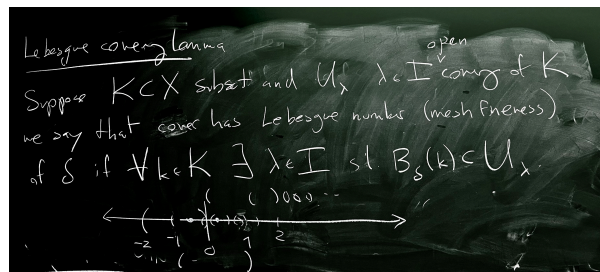 Lebesgue covering Lamma
open
Suppose K ⊂ X subset and U_λ λ ∈ I covering of K
we say that cover has Lebesgue number (mesh fineness)
of δ if ∀ k ∈ K ∃ λ ∈ I s.t. B_δ(k) ⊂ U_λ.
-2 -1 0 1 2